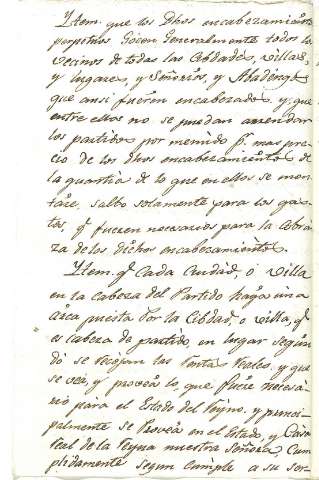 Ytem. que los Dhos encabezamientos
perpetuos Gocen Generalmente todos los
vecinos de todas las Cibdades, villas,
y lugares, y Señorios, y Abadengos
que ansi fueren encabezados y, que
entre ellos no se puedan arrendar
los partidos por menudo pr. mas pre-
cio de los Dhos encabezamientos de
la quantia de lo que en ellos se mon-
tare, salbo solamente para los gas-
tos, q fueren necesarios para la cobran
za de los dichos encabezamientos.
Ytem. q Cada Ciudad, o villa
en la Cabeza del Partido haga una
arca puesta Por la Cibdad, o villa, q
es cabeza de partido, en lugar segun
do se recojan las Rentas Reales, y que
se vea, y provea lo, que fuere necesa-
rio para el Estado del Reyno, y princi-
palmente se Provea en el Estado, y Casa
Real de la Reyna nuestra Señora, Cum-
plidamente segun cumple a su ser-